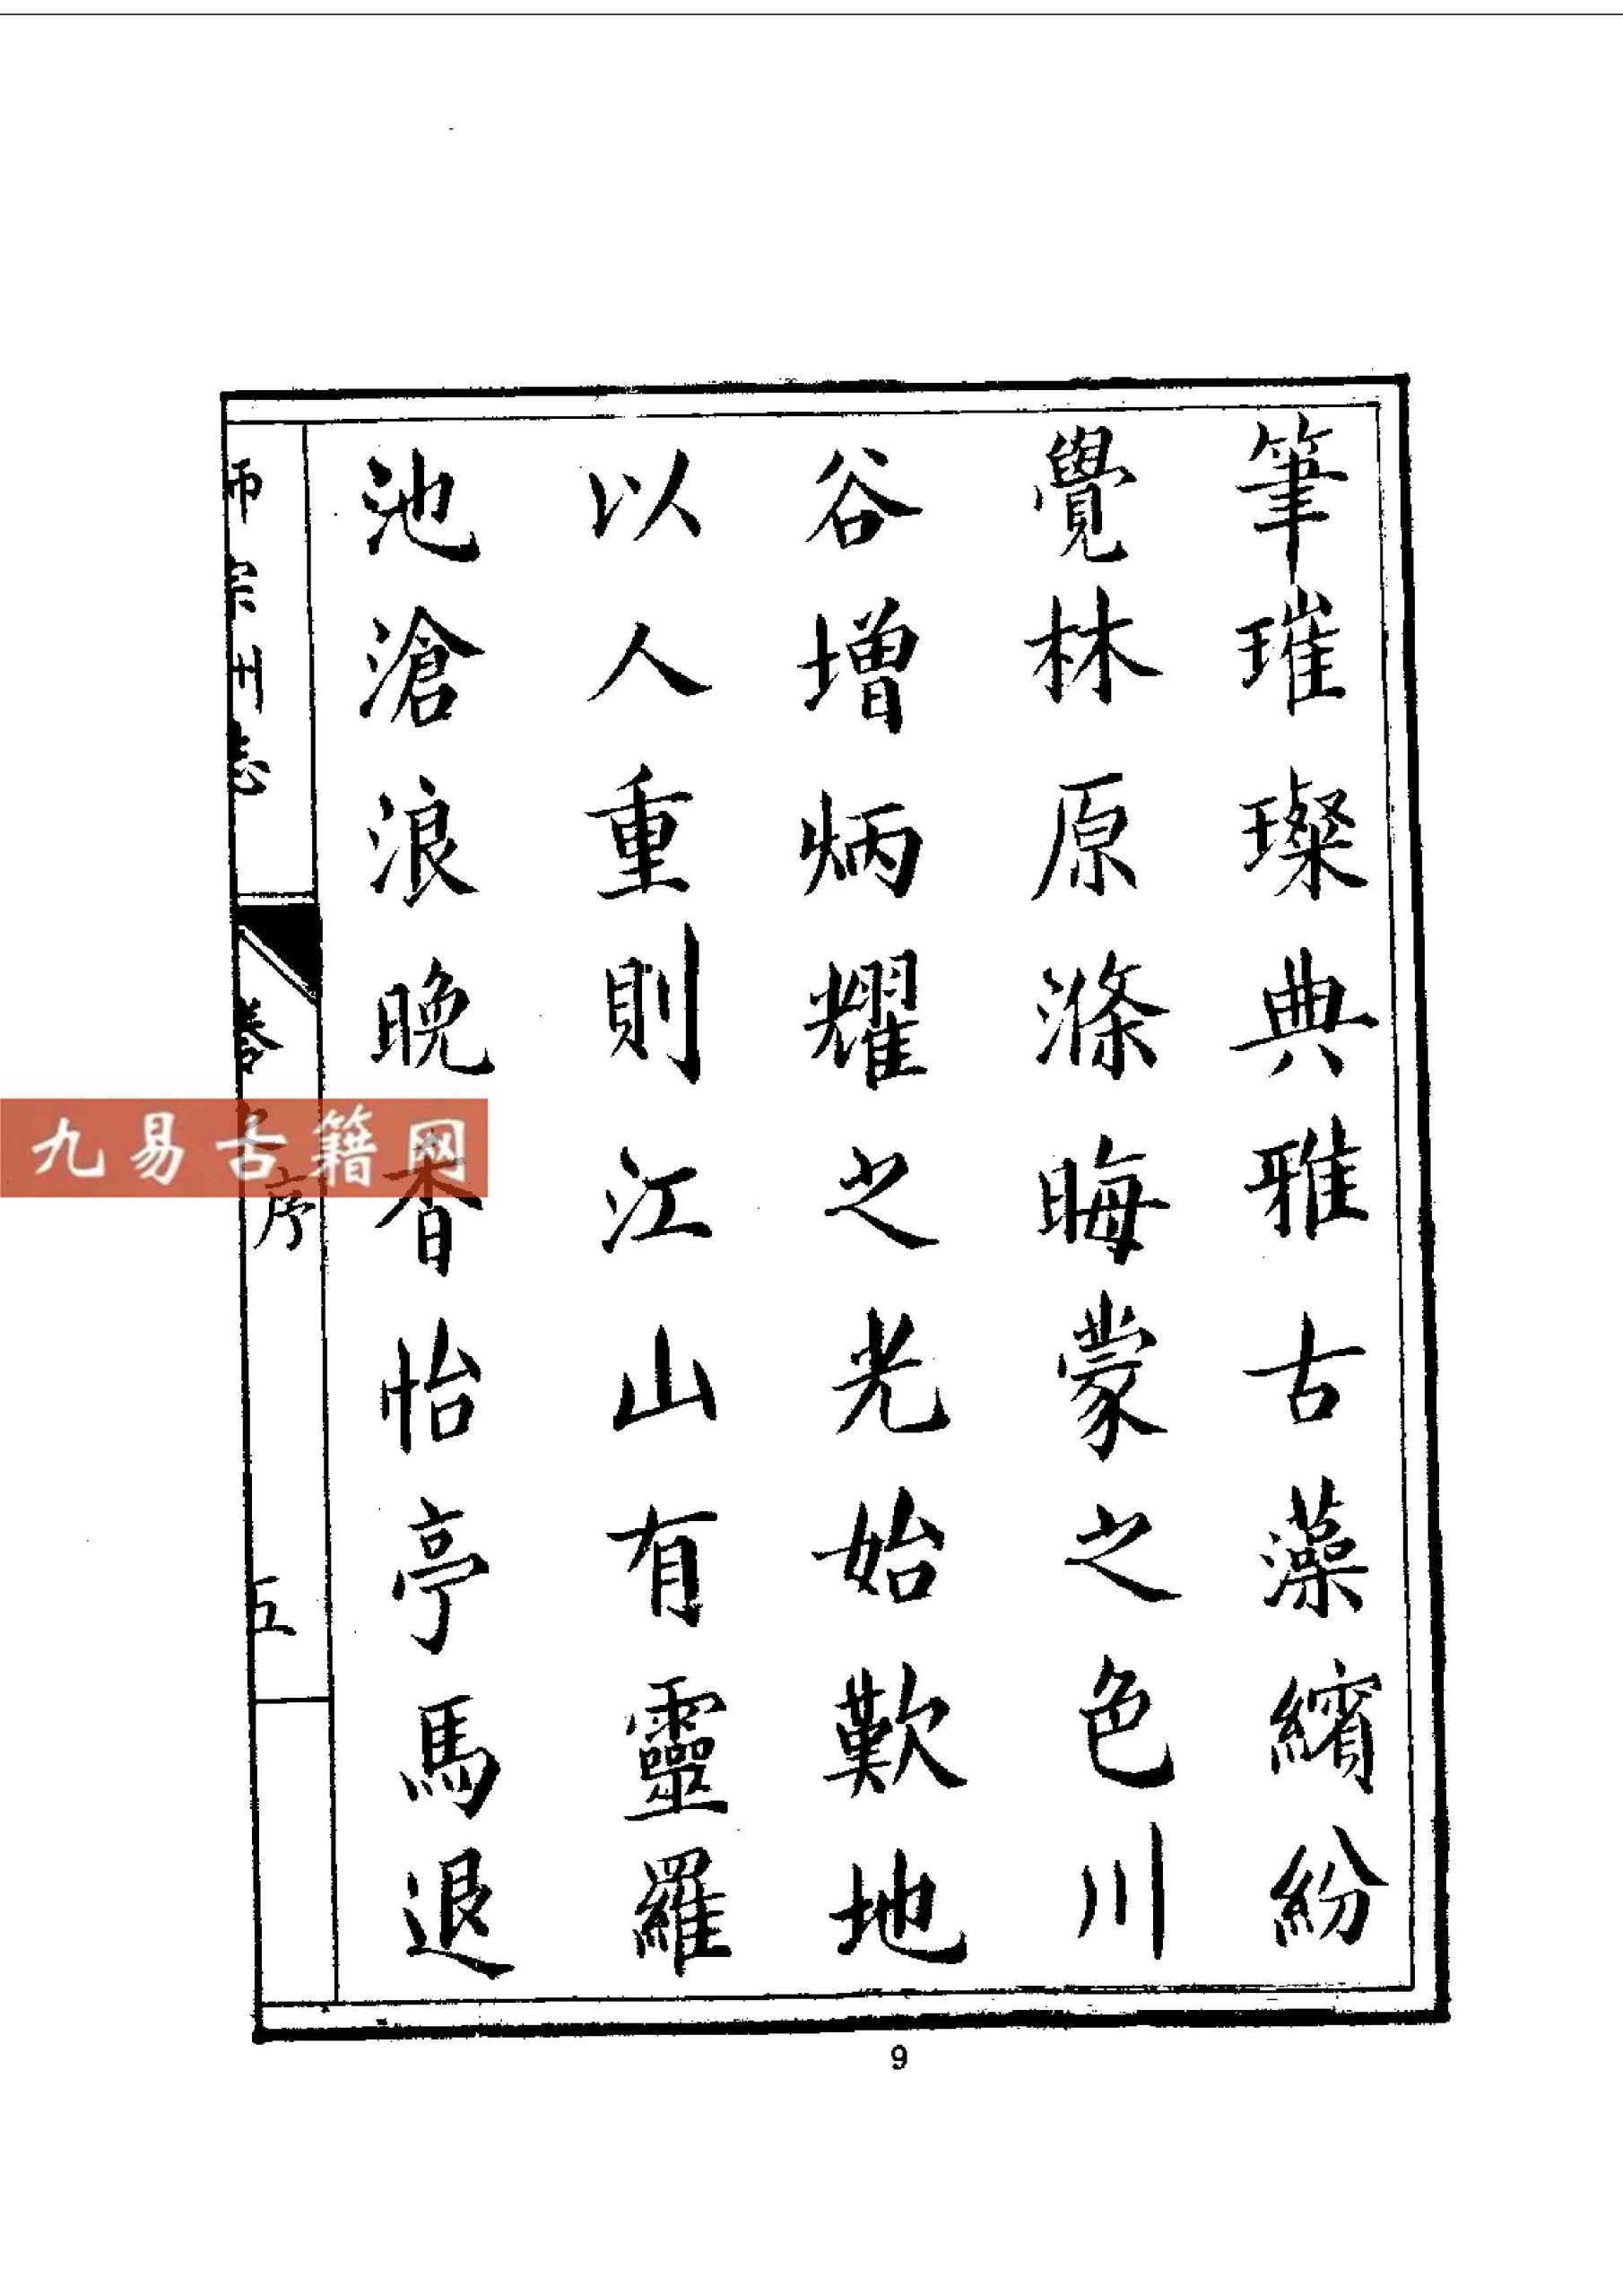 筆璀璨典雅古藻繽紛
覺林原滌晦蒙之色川
谷增炳耀之光始歎地
以人重則江山有靈羅
池滄浪晚香怡亭馬退
師宗州志
卷
序
五
九易古籍网
9